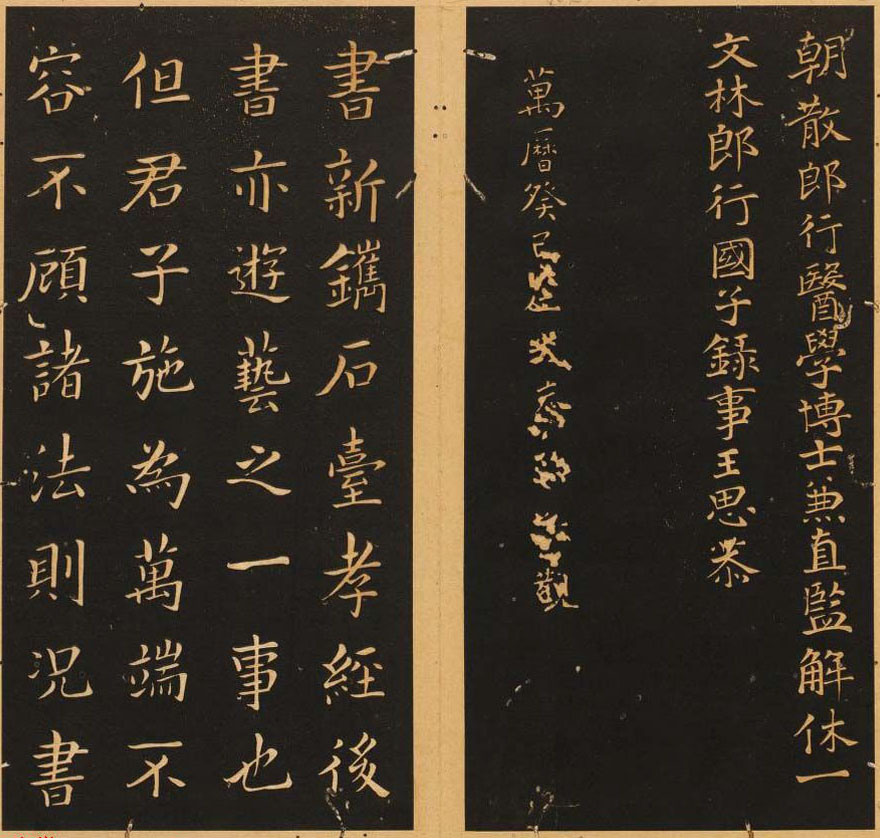 朝散郎行醫學博士兼直監解休一
文林郎行國子錄事王思恭
萬曆癸巳觀
書新鐫石臺孝經後
書亦遊藝之一事也
但君子施為萬端不
容不顧諸法則況書